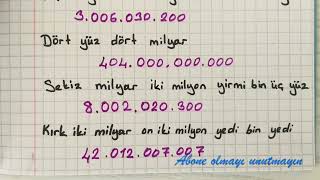 3.006.030.200
Dört yüz dört milyar
404.000.000.000
Sekiz milyar iki milyon yirmi bin üç yüz
8.002.020.300
Kırk iki milyar on iki milyon yedi bin yedi
42.012.007.007
Abone olmayı unutmayın